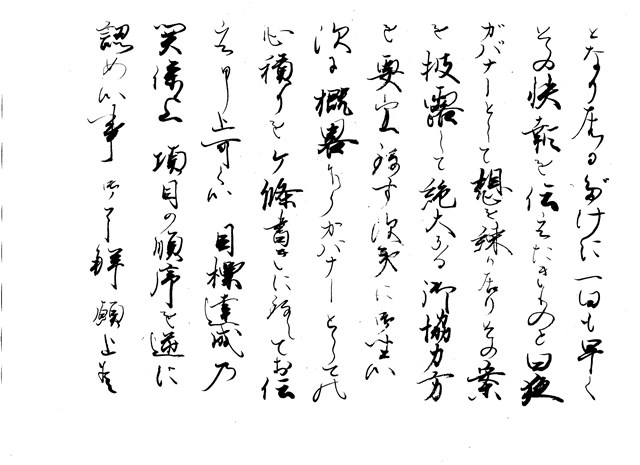 となり居るだけに一日も早く
その快報を伝えたきものと日夜
ガバナーとして想を練り居りその案
を披露して絶大なる御協力方
を要望致す次第に御座候
次に概略乍らガバナーとしての
心積りをケ條書きに致してお伝
え申上可く候 目標達成乃
関係上 項目の順序を逆に
認め候事 御了解願上候